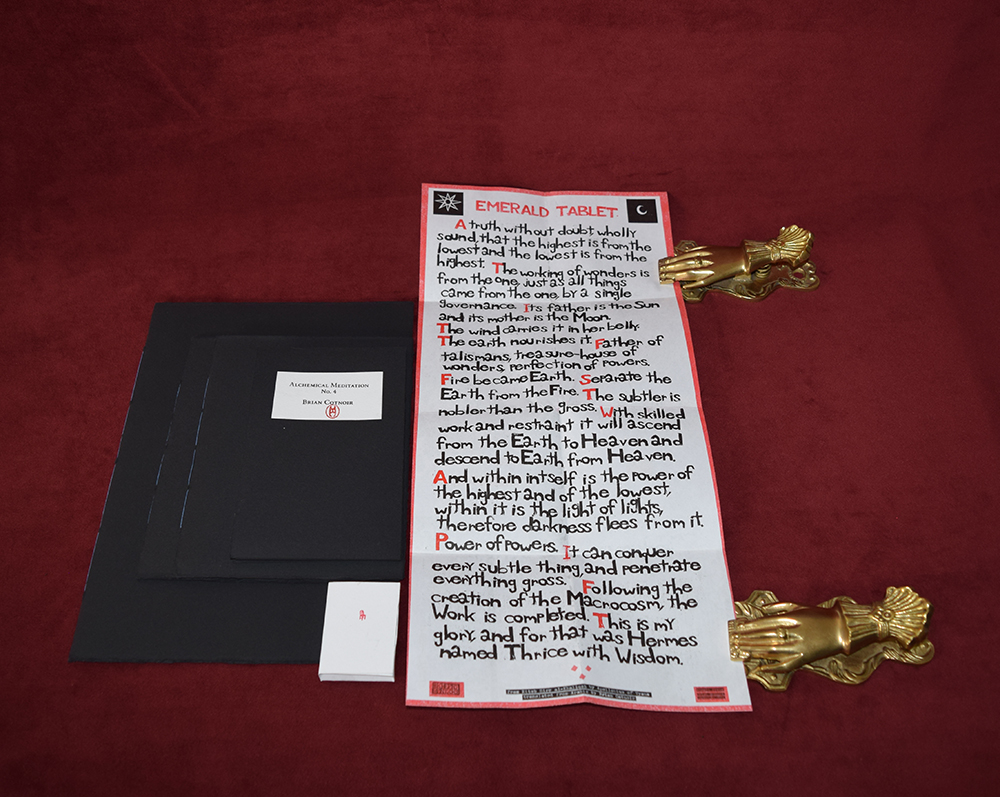 ALCHEMICAL MEDITATION
No. 4
BRIAN COTNOIR
EMERALD TABLET
A truth without doubt, wholly
sound, that the highest is from the
lowest and the lowest is from the
highest. The working of wonders is
from the one, just as all things
came from the one, by a single
governance. Its father is the Sun
and its mother is the Moon.
The wind carries it in her belly.
The earth nourishes it. Father of
talismans, treasure-house of
wonders, perfection of powers.
Fire became Earth. Separate the
Earth from the Fire. The subtler is
nobler than the gross. With skilled
work and restraint it will ascend
from the Earth to Heaven and
descend to Earth from Heaven.
And within intself is the power of
the highest and of the lowest,
within it is the light of lights,
therefore darkness flees from it.
Power of powers. It can conquer
every subtle thing, and penetrate
everything gross. Following the
creation of the Macrocosm, the
Work is completed. This is my
glory, and for that was Hermes
named Thrice with Wisdom.